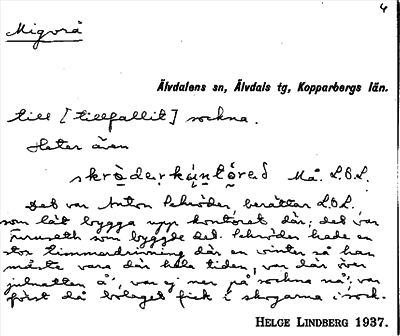 4
Migvrå
Älvdalens sn, Älvdals tg, Kopparbergs län.
till [tillfallit] sockna.
Heter även
skrö̀derkú̜ntöred Må. L.O.L.
Det var Anton Schröder, berättar L.O.L.
som lät bygga upp kontoret där; det var
som byggde det. Schröder hade en
stor timmerdrivning där en vinter så han
måste vara där hela tiden, var där över
julnatten å', var ej ner på sockna nå'; var
först då bolaget fick i skogarna i sock.
HELGE LINDBERG 1937.